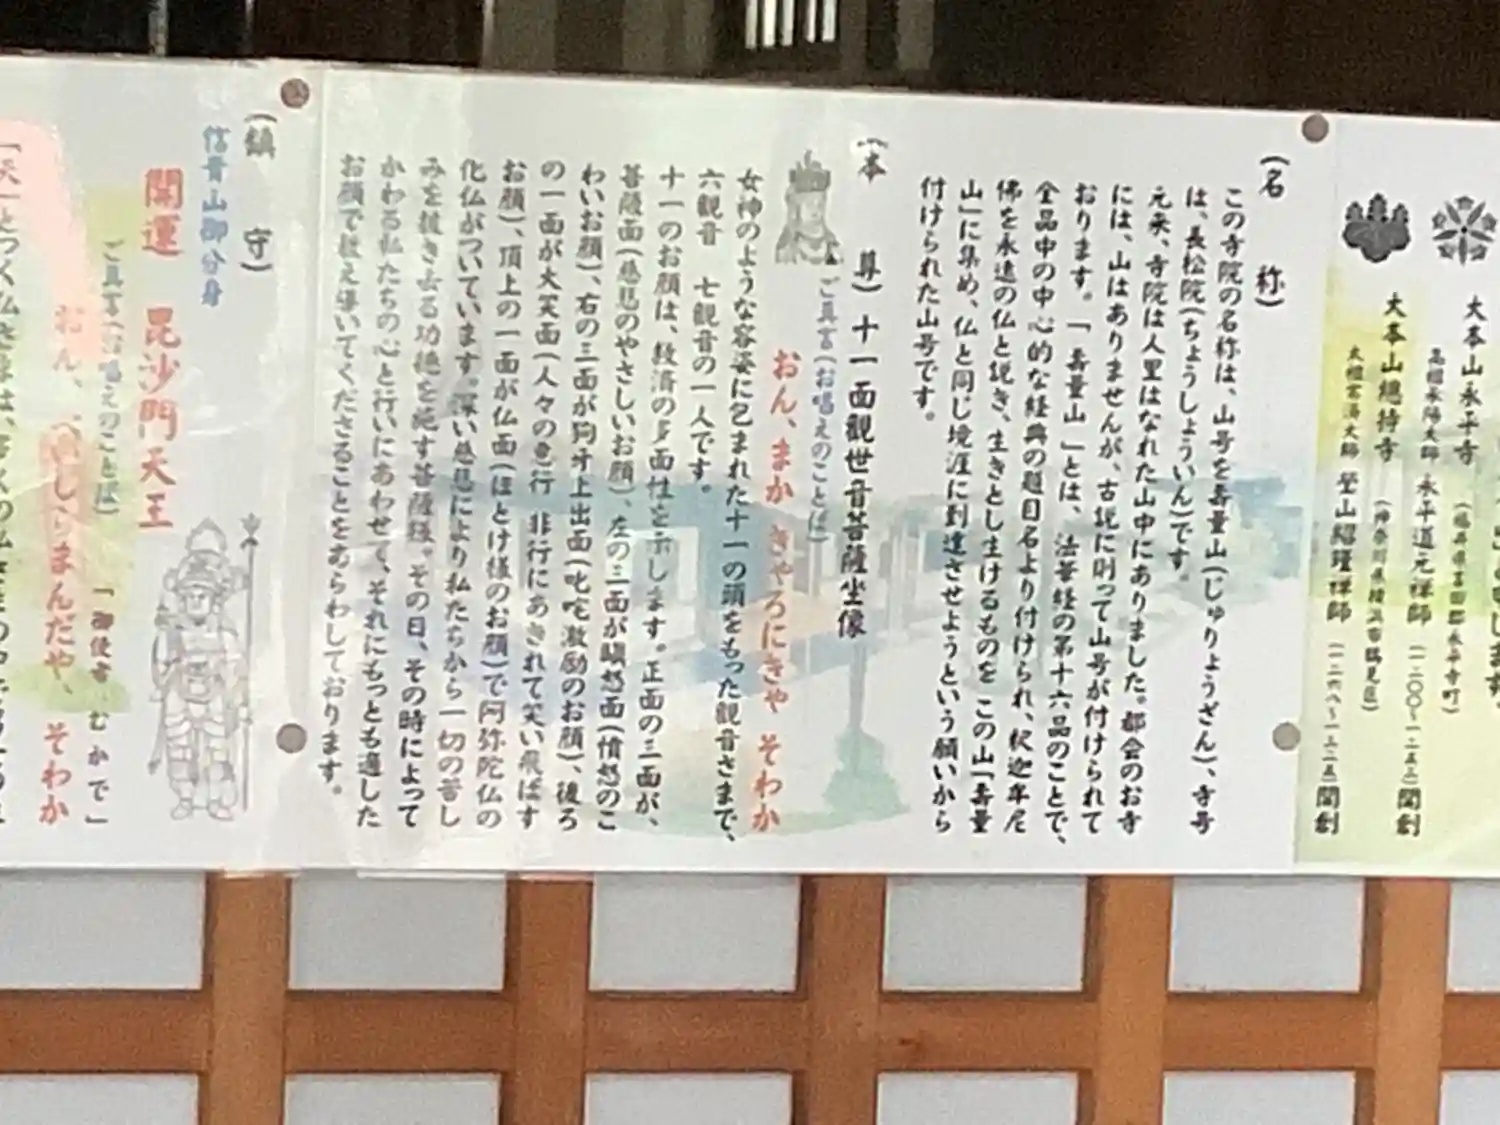 大本山永平寺
(福井県吉田郡永平寺町)
高祖承陽大師 永平道元禅師 (一二〇〇~一二五三)開創
大本山總持寺
(神奈川県横浜市鶴見区)
太祖常済大師 瑩山紹瑾禅師 (一二六八~一三二五)開創
(名称)
この寺院の名称は、山号を寿量山(じゅりょうざん)、寺号
は、長松院(ちょうしょういん)です。
元来、寺院は人里はなれた山中にありました。都会のお寺
には、山はありませんが、古説に則って山号が付けられて
おります。「寿量山」とは、法華経の第十六品のことで、
全品中の中心的な経典の題目名より付けられ、釈迦牟尼
佛を永遠の仏と説き、生きとし生けるものを この山「寿量
山」に集め、仏と同じ境涯に到達させようという願いから
付けられた山号です。
(本尊) 十一面観世音菩薩坐像
ご真言(お唱えのことば)
おん、まか きゃろにきゃ そわか
女神のような容姿に包まれた十一の頭をもった観音さまで、
六観音 七観音の一人です。
十一のお顔は、救済の多面性を示します。正面の三面が、
菩薩面(慈悲のやさしいお顔)、左の三面が瞋怒面(憤怒のこ
わいお顔)、右の三面が狗牙上出面(叱咤激励のお顔)、後ろ
の一面が大笑面(人々の悪行 非行にあきれて笑い飛ばす
お顔)、頂上の一面が仏面(ほとけ様のお顔)で阿弥陀仏の
化仏がついています。深い慈悲により私たちから一切の苦し
みを抜き去る功徳を施す菩薩様。その日、その時によって
かわる私たちの心と行いにあわせて、それにもっとも適した
お顔で教え導いてくださることをあらわしております。
(鎮守)
信貴山御分身
開運 毘沙門天王
ご真言(お唱えのことば) 「御使者、むかで」
おん、べいしらまんだや、そわか